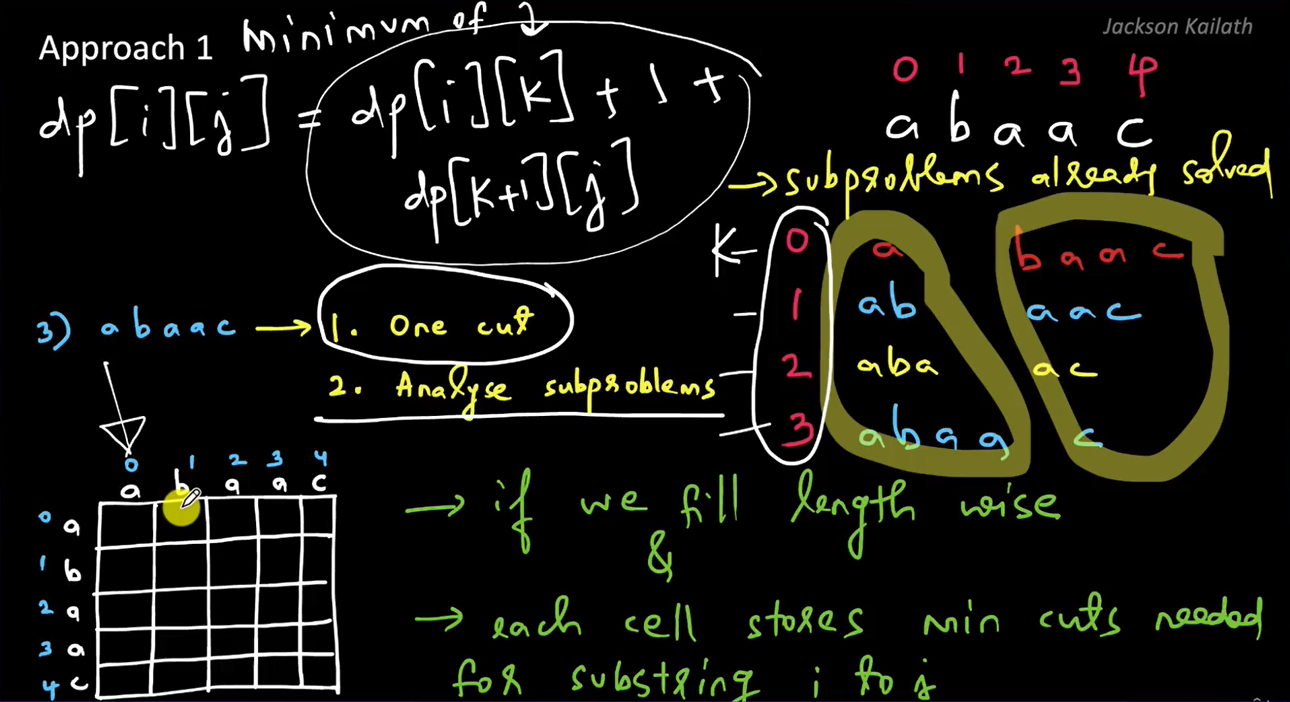 Jackson Kailath
Approach 1 Minimum of
dp[i][j] = dp[i][k] + 1 +
dp[k+1][j]
0 1 2 3 4
a b a a c
→ subproblems already solved
K 0 a b a a c
1 ab a a c
2 aba a c
3 a b a a c
3) a b a a c → 1. One cut
2. Analyse subproblems
0 1 2 3 4
a b a a c
0 a
1 b
2 a
3 a
4 c
→ if we fill length wise
&
→ each cell stores min cuts needed
for substring i to j